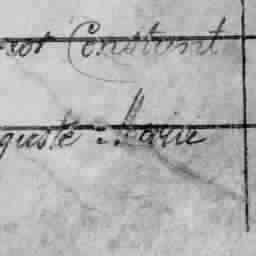 Constant
guste Marie